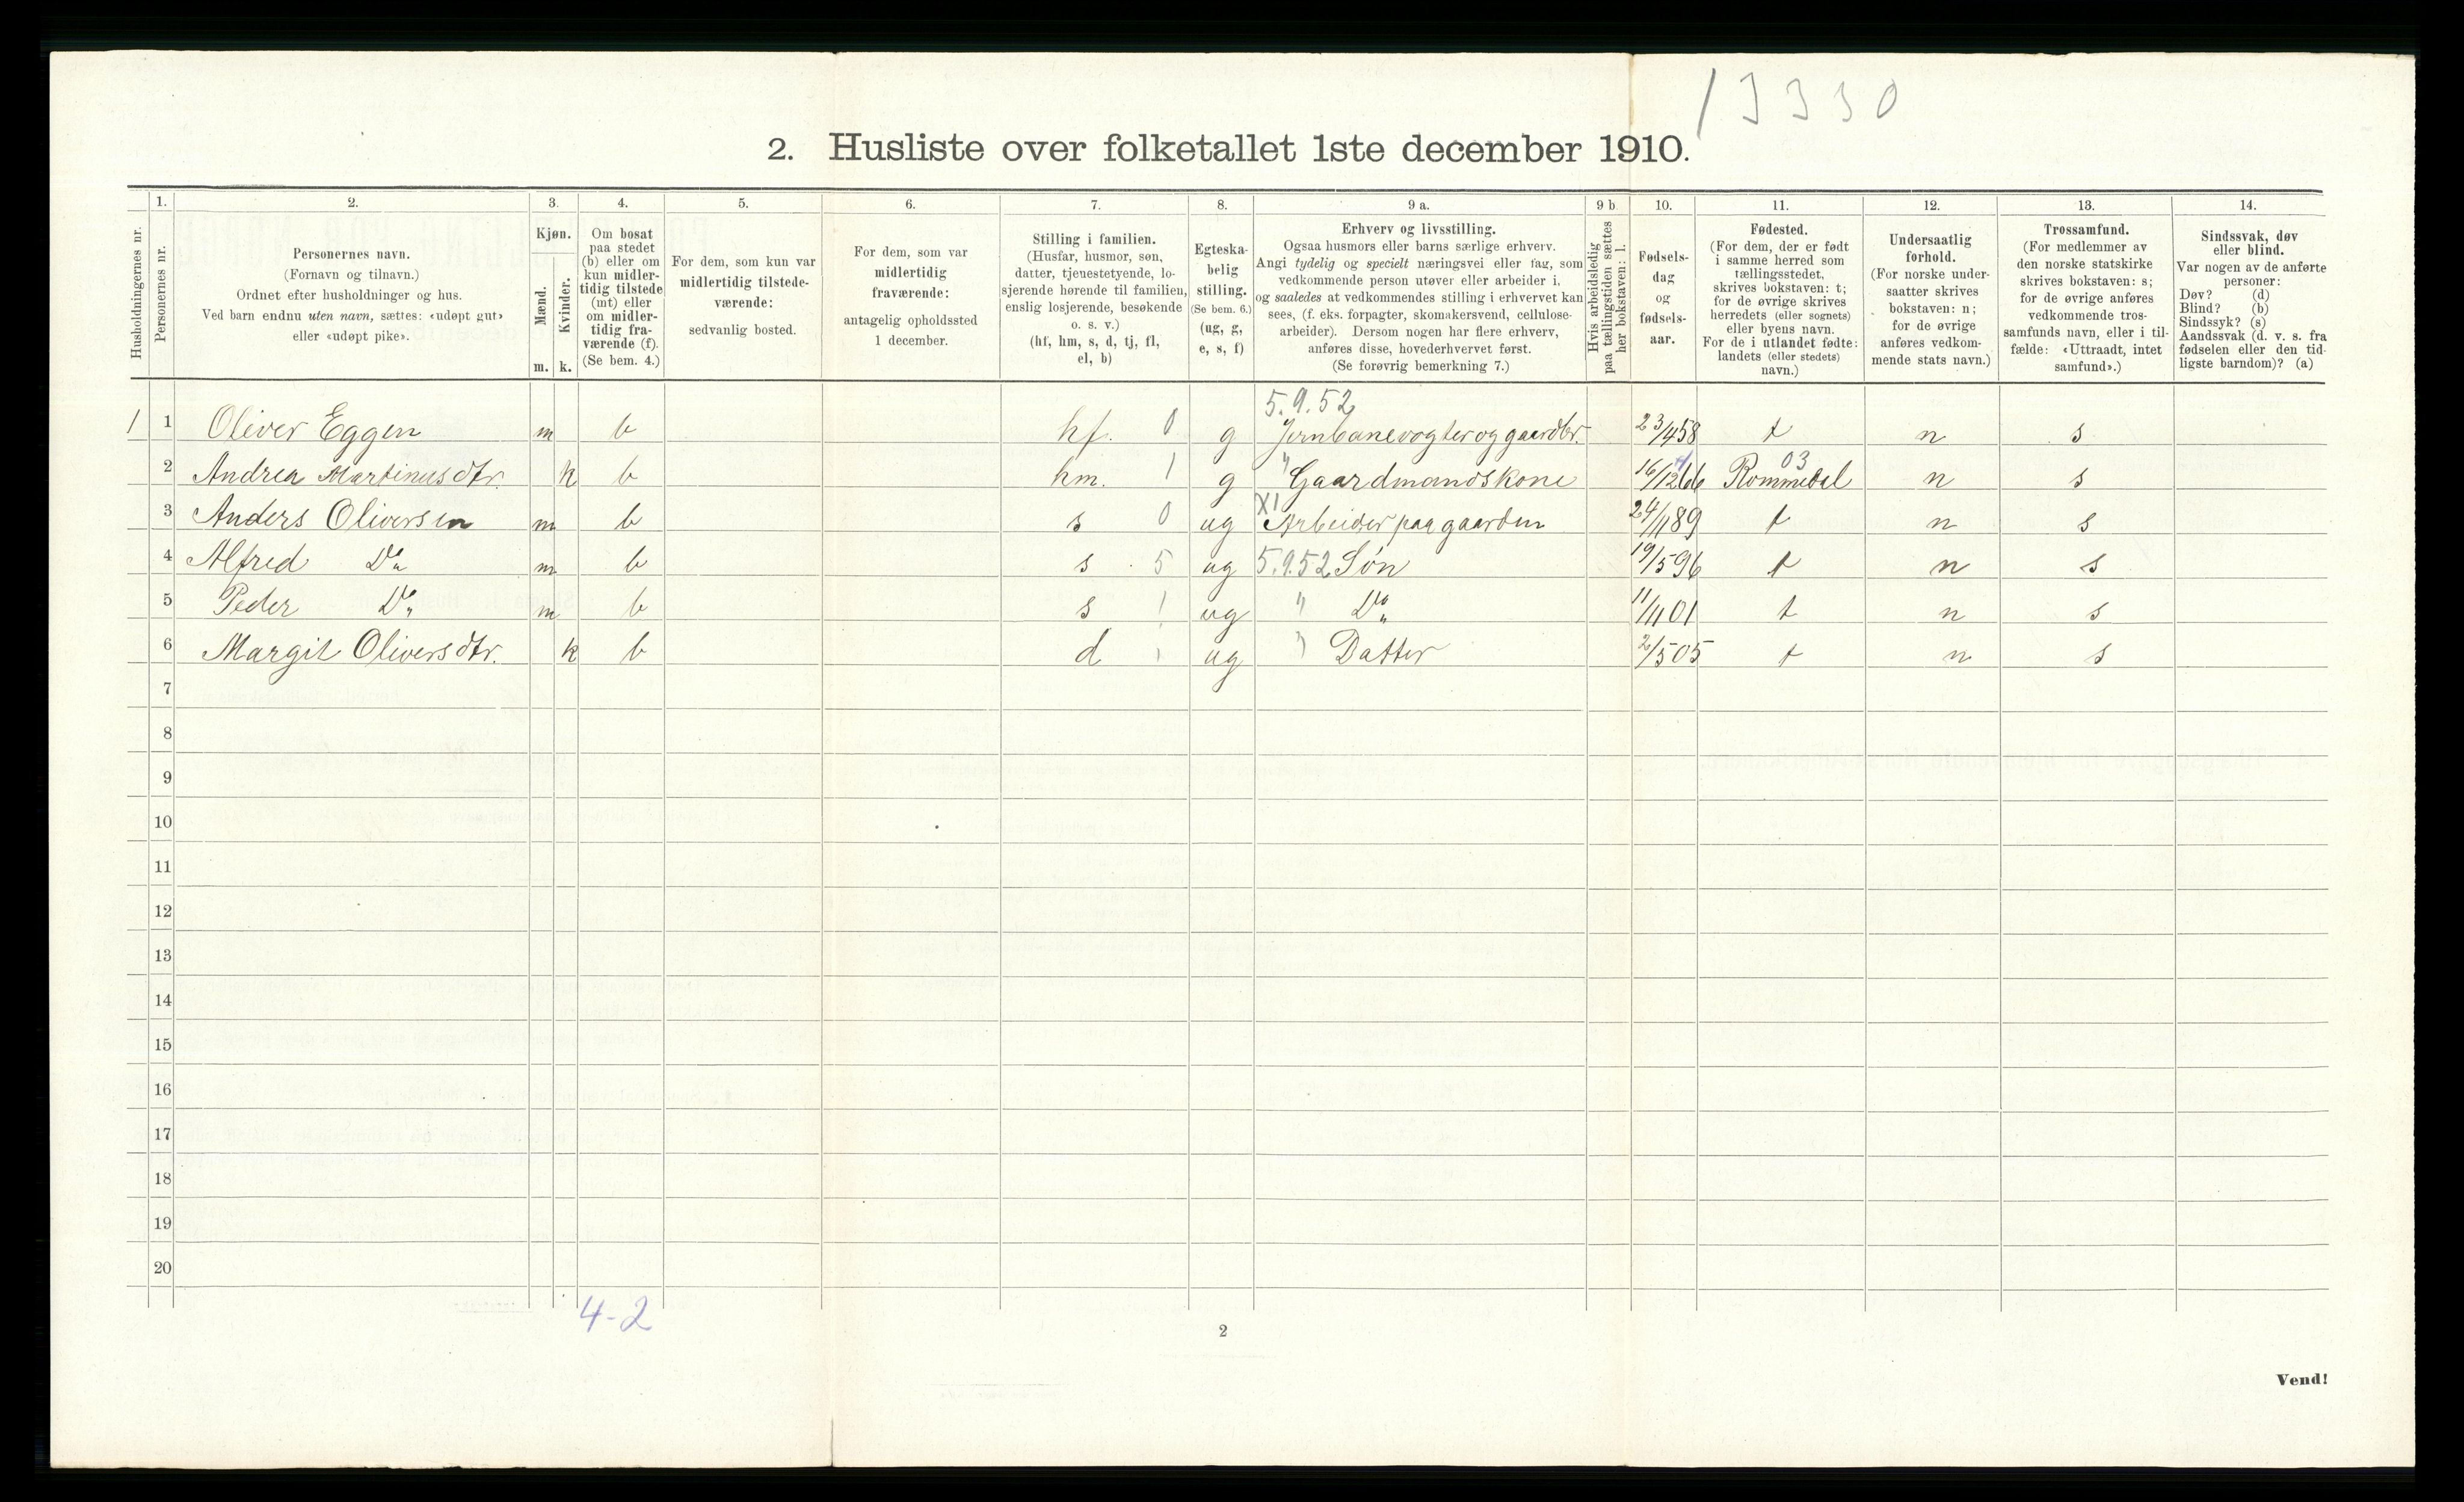 13330
2. Husliste over folketallet 1ste december 1910.
Husholdningernes nr.
1.
Personernes nr.
2.
Personernes navn.
(Fornavn og tilnavn.)
Ordnet efter husholdninger og hus.
Ved barn endnu uten navn, sættes: «udøpt gut»
eller «udøpt pike».
3.
Kjøn.
Mænd.
Kvinder.
m. k.
4.
Om bosat
paa stedet
(b) eller om
kun midler-
tidig tilstede
(mt) eller
om midler-
tidig fra-
værende (f).
(Se bem. 4.)
5.
For dem, som kun var
midlertidig tilstede-
værende:
sedvanlig bosted.
6.
For dem, som var
midlertidig
fraværende:
antagelig opholdssted
1 december.
7.
Stilling i familien.
(Husfar, husmor, søn,
datter, tjenestetyende, lo-
sjerende hørende til familien,
enslig losjerende, besøkende
o. s. v.)
(hf, hm, s, d, tj, fl,
el, b)
8.
Egteska-
belig
stilling.
(Se bem. 6.)
(ug, g,
e, s, f)
9 a.
Erhverv og livsstilling.
Ogsaa husmors eller barns særlige erhverv.
Angi tydelig og specielt næringsvei eller fag, som
vedkommende person utøver eller arbeider i,
og saaledes at vedkommendes stilling i erhvervet kan
sees, (f. eks. forpagter, skomakersvend, cellulose-
arbeider). Dersom nogen har flere erhverv,
anføres disse, hovederhvervet først.
(Se forøvrig bemerkning 7.)
9 b
Hvis arbeidsledig
paa tællingstiden sættes
her bokstaven: l.
10.
Fødsels-
dag
og
fødsels-
aar.
11.
Fødested.
(For dem, der er født
i samme herred som
tællingsstedet,
skrives bokstaven: t;
for de øvrige skrives
herredets (eller sognets)
eller byens navn.
For de i utlandet fødte:
landets (eller stedets)
navn.)
12.
Undersaatlig
forhold.
(For norske under-
saatter skrives
bokstaven: n;
for de øvrige
anføres vedkom-
mende stats navn.)
13.
Trossamfund.
(For medlemmer av
den norske statskirke
skrives bokstaven: s;
for de øvrige anføres
vedkommende tros-
samfunds navn, eller i til-
fælde: «Uttraadt, intet
samfund».)
14.
Sindssvak, døv
eller blind.
Var nogen av de anførte
personer:
Døv? (d)
Blind? (b)
Sindssyk? (s)
Aandssvak (d. v. s. fra
fødselen eller den tid-
ligste barndom)? (a)
5.9.52
1 1 Oliver Eggen m b hf. 0 g Jernbanevogter og gaardbr. 23/4 58 t n s
03
2 Andrea Martinusdtr. k b hm. 1 g " Gaardmandskone 16/12 66 Rommedal n s
XI
3 Anders Oliversen m b s 0 ug Arbeider paa gaarden 24/1 89 t n s
4 Alfred Do m b s 5 ug 5.9.52 Søn 19/5 96 t n s
5 Peder Do m b s 1 ug " Do 11/11 01 t n s
6 Margit Oliversdtr. k b d 1 ug " Datter 2/5 05 t n s
7
8
9
10
11
12
13
14
15
16
17
18
19
20
4-2
2
Vend!